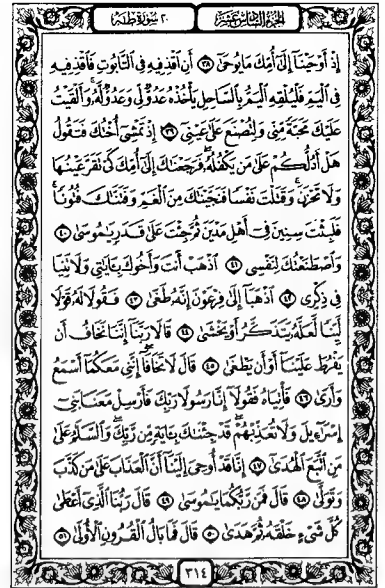 الجزء السادس عشر
٢٠ سورة طه
إِذْ أَوْحَيْنَا إِلَىٰ أُمِّكَ مَا يُوحَىٰ ٣٨ أَنِ اقْذِفِيهِ فِي التَّابُوتِ فَاقْذِفِيهِ
فِي الْيَمِّ فَلْيُلْقِهِ الْيَمُّ بِالسَّاحِلِ يَأْخُذْهُ عَدُوٌّ لِّي وَعَدُوٌّ لَّهُ ۚ وَأَلْقَيْتُ
عَلَيْكَ مَحَبَّةً مِّنِّي وَلِتُصْنَعَ عَلَىٰ عَيْنِي ٣٩ إِذْ تَمْشِي أُخْتُكَ فَتَقُولُ
هَلْ أَدُلُّكُمْ عَلَىٰ مَن يَكْفُلُهُ ۖ فَرَجَعْنَاكَ إِلَىٰ أُمِّكَ كَيْ تَقَرَّ عَيْنُهَا
وَلَا تَحْزَنَ ۚ وَقَتَلْتَ نَفْسًا فَنَجَّيْنَاكَ مِنَ الْغَمِّ وَفَتَنَّاكَ فُتُونًا ۚ
فَلَبِثْتَ سِنِينَ فِي أَهْلِ مَدْيَنَ ثُمَّ جِئْتَ عَلَىٰ قَدَرٍ يَا مُوسَىٰ ٤٠
وَاصْطَنَعْتُكَ لِنَفْسِي ٤١ اذْهَبْ أَنتَ وَأَخُوكَ بِآيَاتِي وَلَا تَنِيَا
فِي ذِكْرِي ٤٢ اذْهَبَا إِلَىٰ فِرْعَوْنَ إِنَّهُ طَغَىٰ ٤٣ فَقُولَا لَهُ قَوْلًا
لَّيِّنًا لَّعَلَّهُ يَتَذَكَّرُ أَوْ يَخْشَىٰ ٤٤ قَالَا رَبَّنَا إِنَّنَا نَخَافُ أَن
يَفْرُطَ عَلَيْنَا أَوْ أَن يَطْغَىٰ ٤٥ قَالَ لَا تَخَافَا ۖ إِنَّنِي مَعَكُمَا أَسْمَعُ
وَأَرَىٰ ٤٦ فَأْتِيَاهُ فَقُولَا إِنَّا رَسُولَا رَبِّكَ فَأَرْسِلْ مَعَنَا بَنِي
إِسْرَائِيلَ وَلَا تُعَذِّبْهُمْ ۖ قَدْ جِئْنَاكَ بِآيَةٍ مِّن رَّبِّكَ ۖ وَالسَّلَامُ عَلَىٰ
مَنِ اتَّبَعَ الْهُدَىٰ ٤٧ إِنَّا قَدْ أُوحِيَ إِلَيْنَا أَنَّ الْعَذَابَ عَلَىٰ مَن كَذَّبَ
وَتَوَلَّىٰ ٤٨ قَالَ فَمَن رَّبُّكُمَا يَا مُوسَىٰ ٤٩ قَالَ رَبُّنَا الَّذِي أَعْطَىٰ
كُلَّ شَيْءٍ خَلْقَهُ ثُمَّ هَدَىٰ ٥٠ قَالَ فَمَا بَالُ الْقُرُونِ الْأُولَىٰ ٥١
٣١٤